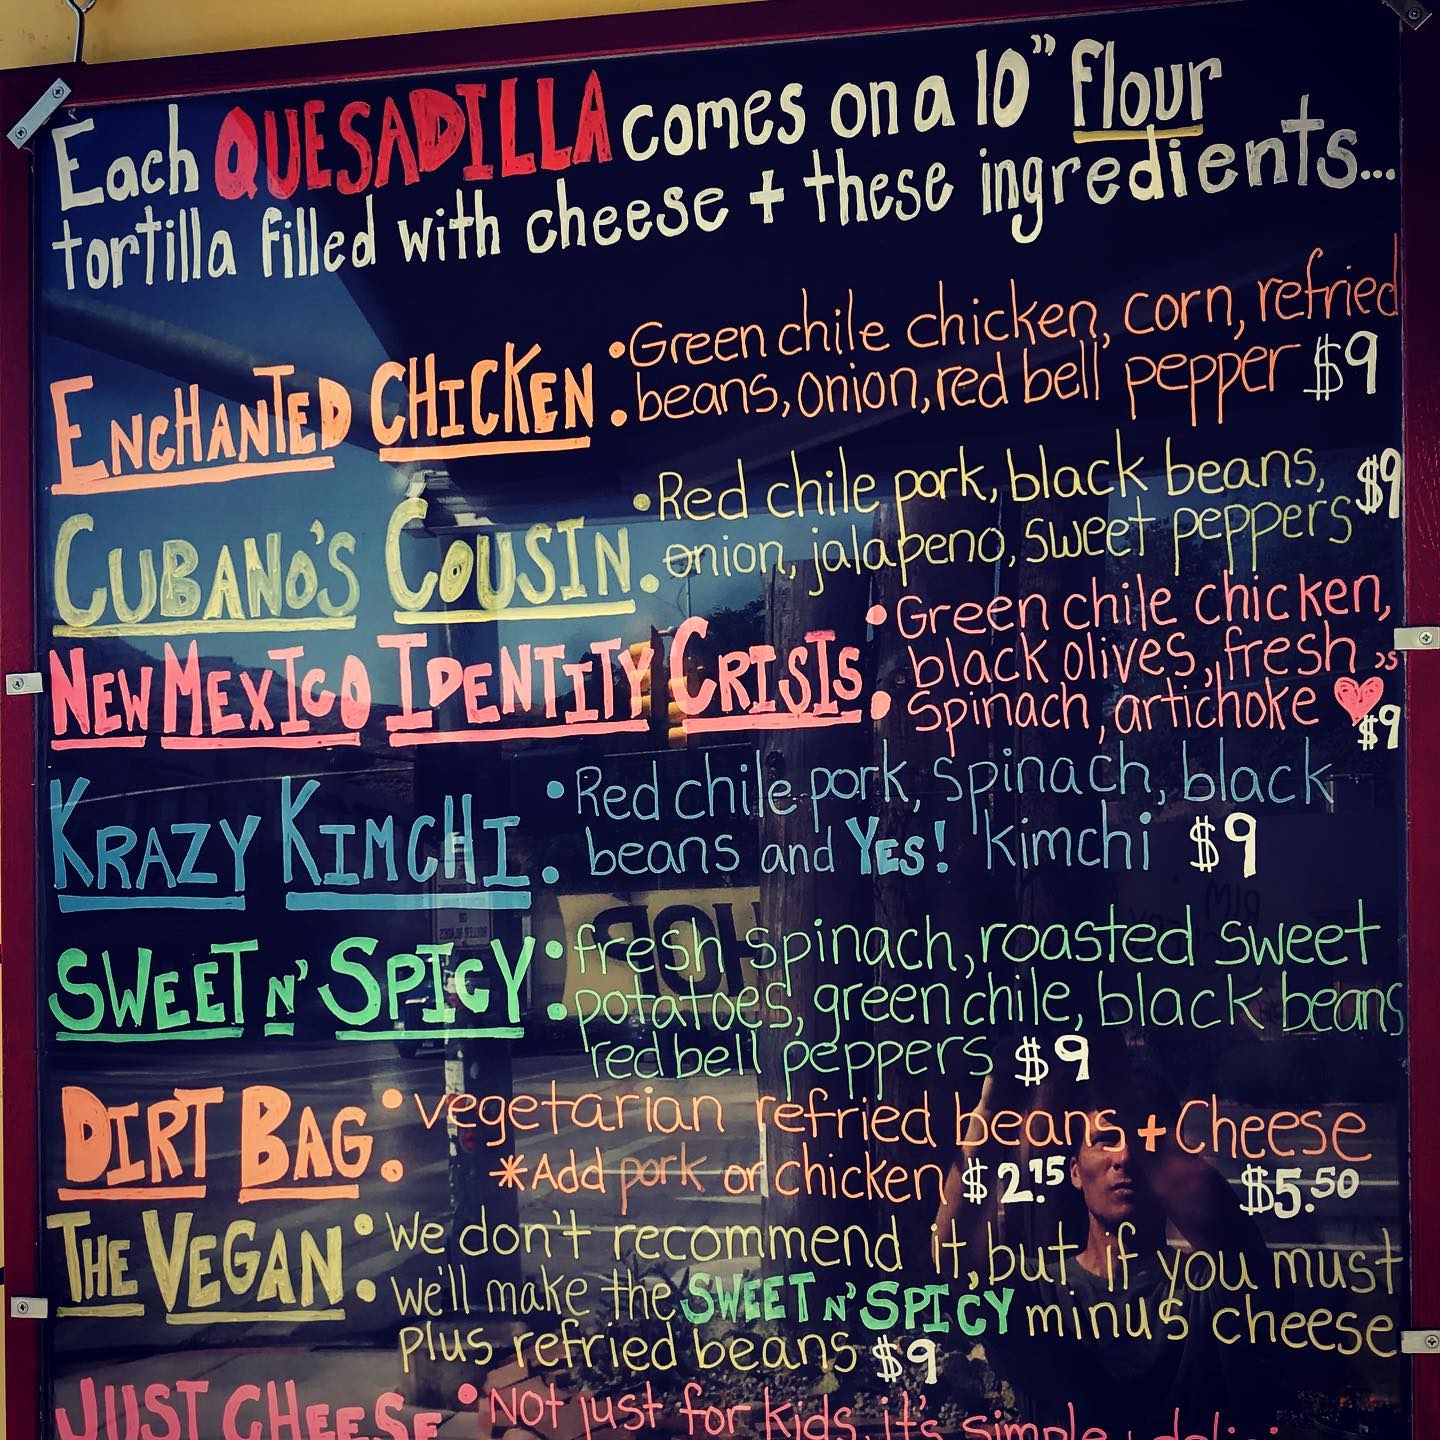 Each QUESADILLA comes on a 10" flour
tortilla filled with cheese + these ingredients...
ENCHANTED CHICKEN: Green chile chicken, corn, refried
beans, onion, red bell pepper $9
CUBANO'S COUSIN: Red chile pork, black beans, $9
onion, jalapeno, sweet peppers
NEW MEXICO IDENTITY CRISIS: Green chile chicken,
black olives, fresh
spinach, artichoke ♥'s
$9
KRAZY KIMCHI: Red chile pork, spinach, black
beans and YES! kimchi $9
SWEET N' SPICY: fresh spinach, roasted sweet
potatoes, green chile, black beans
red bell peppers $9
DIRT BAG: vegetarian refried beans + Cheese
*Add pork or chicken $2.15 $5.50
THE VEGAN: We don't recommend it, but if you must
we'll make the SWEET N' SPICY minus cheese
plus refried beans $9
JUST CHEESE: Not just for kids, it's simple